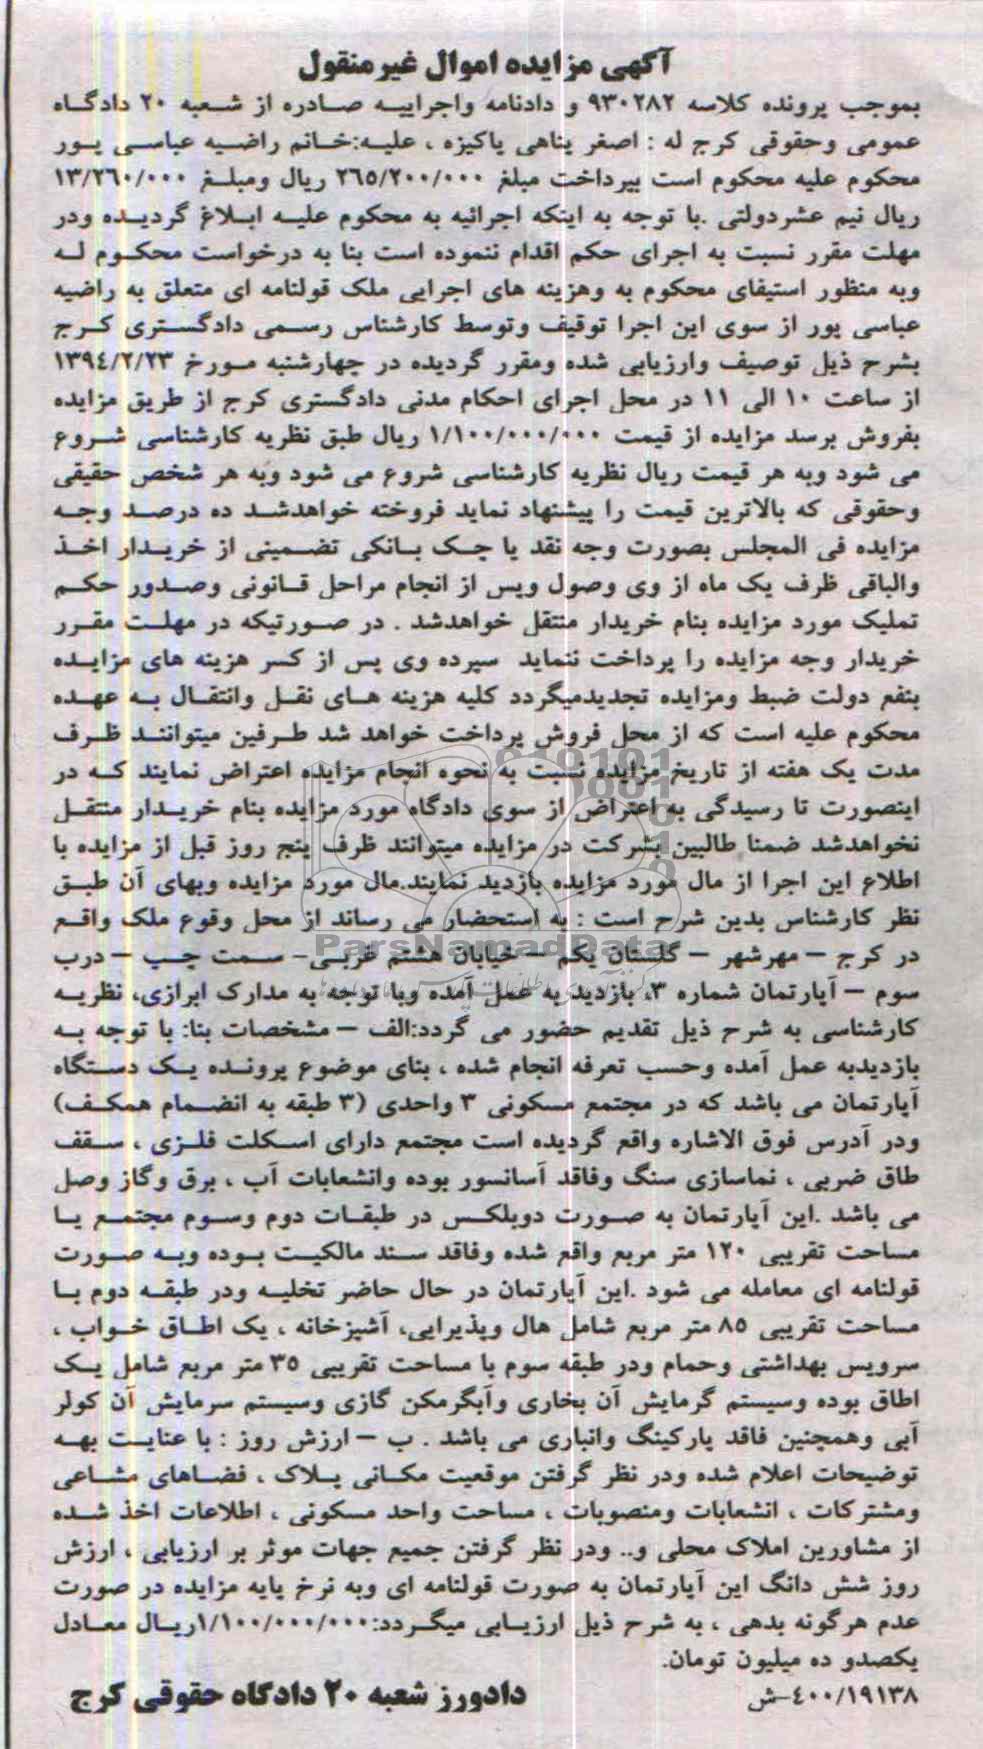 آگهی مزایده اموال غیرمنقول
بموجب پرونده کلاسه ۹۳۰۲۸۲ و دادنامه واجراییه صادره از شعبه ۲۰ دادگاه
عمومی وحقوقی کرج له : اصغر پناهی پاکیزه ، علیه:خانم راضیه عباسی پور
محکوم علیه محکوم است بپرداخت مبلغ ۲۶۵/۲۰۰/۰۰۰ ریال ومبلغ ۱۳/۲۶۰/۰۰۰
ریال نیم عشردولتی .با توجه به اینکه اجرائیه به محکوم علیه ابلاغ گردیده ودر
مهلت مقرر نسبت به اجرای حکم اقدام ننموده است بنا به درخواست محکوم له
وبه منظور استیفای محکوم به وهزینه های اجرایی ملک قولنامه ای متعلق به راضیه
عباسی پور از سوی این اجرا توقیف وتوسط کارشناس رسمی دادگستری کرج
بشرح ذیل توصیف وارزیابی شده ومقرر گردیده در چهارشنبه مورخ ۱۳۹۴/۲/۲۳
از ساعت ۱۰ الی ۱۱ در محل اجرای احکام مدنی دادگستری کرج از طریق مزایده
بفروش برسد مزایده از قیمت ۱/۱۰۰/۰۰۰/۰۰۰ ریال طبق نظریه کارشناسی شروع
می شود وبه هر قیمت ریال نظریه کارشناسی شروع می شود وبه هر شخص حقیقی
وحقوقی که بالاترین قیمت را پیشنهاد نماید فروخته خواهدشد ده درصد وجه
مزایده فی المجلس بصورت وجه نقد یا چک بانکی تضمینی از خریدار اخذ
والباقی ظرف یک ماه از وی وصول وپس از انجام مراحل قانونی وصدور حکم
تملیک مورد مزایده بنام خریدار منتقل خواهدشد . در صورتیکه در مهلت مقرر
خریدار وجه مزایده را پرداخت ننماید سپرده وی پس از کسر هزینه های مزایده
بنفع دولت ضبط ومزایده تجدیدمیگردد کلیه هزینه های نقل وانتقال به عهده
محکوم علیه است که از محل فروش پرداخت خواهد شد طرفین میتوانند ظرف
مدت یک هفته از تاریخ مزایده نسبت به نحوه انجام مزایده اعتراض نمایند که در
اینصورت تا رسیدگی به اعتراض از سوی دادگاه مورد مزایده بنام خریدار منتقل
نخواهدشد ضمنا طالبین بشرکت در مزایده میتوانند ظرف پنج روز قبل از مزایده با
اطلاع این اجرا از مال مورد مزایده بازدید نمایند.مال مورد مزایده وبهای آن طبق
نظر کارشناس بدین شرح است : به استحضار می رساند از محل وقوع ملک واقع
ParsNamadData
در کرج – مهرشهر – گلستان یکم – خیابان هشتم غربی- سمت چپ – درب
سوم – آپارتمان شماره ۳، بازدید به عمل آمده وبا توجه به مدارک ابرازی، نظریه
کارشناسی به شرح ذیل تقدیم حضور می گردد:الف – مشخصات بنا: با توجه به
بازدیدبه عمل آمده وحسب تعرفه انجام شده ، بنای موضوع پرونده یک دستگاه
آپارتمان می باشد که در مجتمع مسکونی ۳ واحدی (۳ طبقه به انضمام همکف)
ودر آدرس فوق الاشاره واقع گردیده است مجتمع دارای اسکلت فلزی ، سقف
طاق ضربی ، نماسازی سنگ وفاقد آسانسور بوده وانشعابات آب ، برق وگاز وصل
می باشد .این آپارتمان به صورت دوبلکس در طبقات دوم وسوم مجتمع با
مساحت تقریبی ۱۲۰ متر مربع واقع شده وفاقد سند مالکیت بوده وبه صورت
قولنامه ای معامله می شود .این آپارتمان در حال حاضر تخلیه ودر طبقه دوم با
مساحت تقریبی ۸۵ متر مربع شامل هال وپذیرایی، آشپزخانه ، یک اطاق خواب ،
سرویس بهداشتی وحمام ودر طبقه سوم با مساحت تقریبی ۳۵ متر مربع شامل یک
اطاق بوده وسیستم گرمایش آن بخاری وآبگرمکن گازی وسیستم سرمایش آن کولر
آبی وهمچنین فاقد پارکینگ وانباری می باشد . ب – ارزش روز : با عنایت بهه
توضیحات اعلام شده ودر نظر گرفتن موقعیت مکانی پلاک ، فضاهای مشاعی
ومشترکات ، انشعابات ومنصوبات ، مساحت واحد مسکونی ، اطلاعات اخذ شده
از مشاورین املاک محلی و.. ودر نظر گرفتن جمیع جهات موثر بر ارزیابی ، ارزش
روز شش دانگ این آپارتمان به صورت قولنامه ای وبه نرخ پایه مزایده در صورت
عدم هرگونه بدهی ، به شرح ذیل ارزیابی میگردد:۱/۱۰۰/۰۰۰/۰۰۰ریال معادل
یکصدو ده میلیون تومان.
۴۰۰/۱۹۱۳۸-ش
دادورز شعبه ۲۰ دادگاه حقوقی کرج